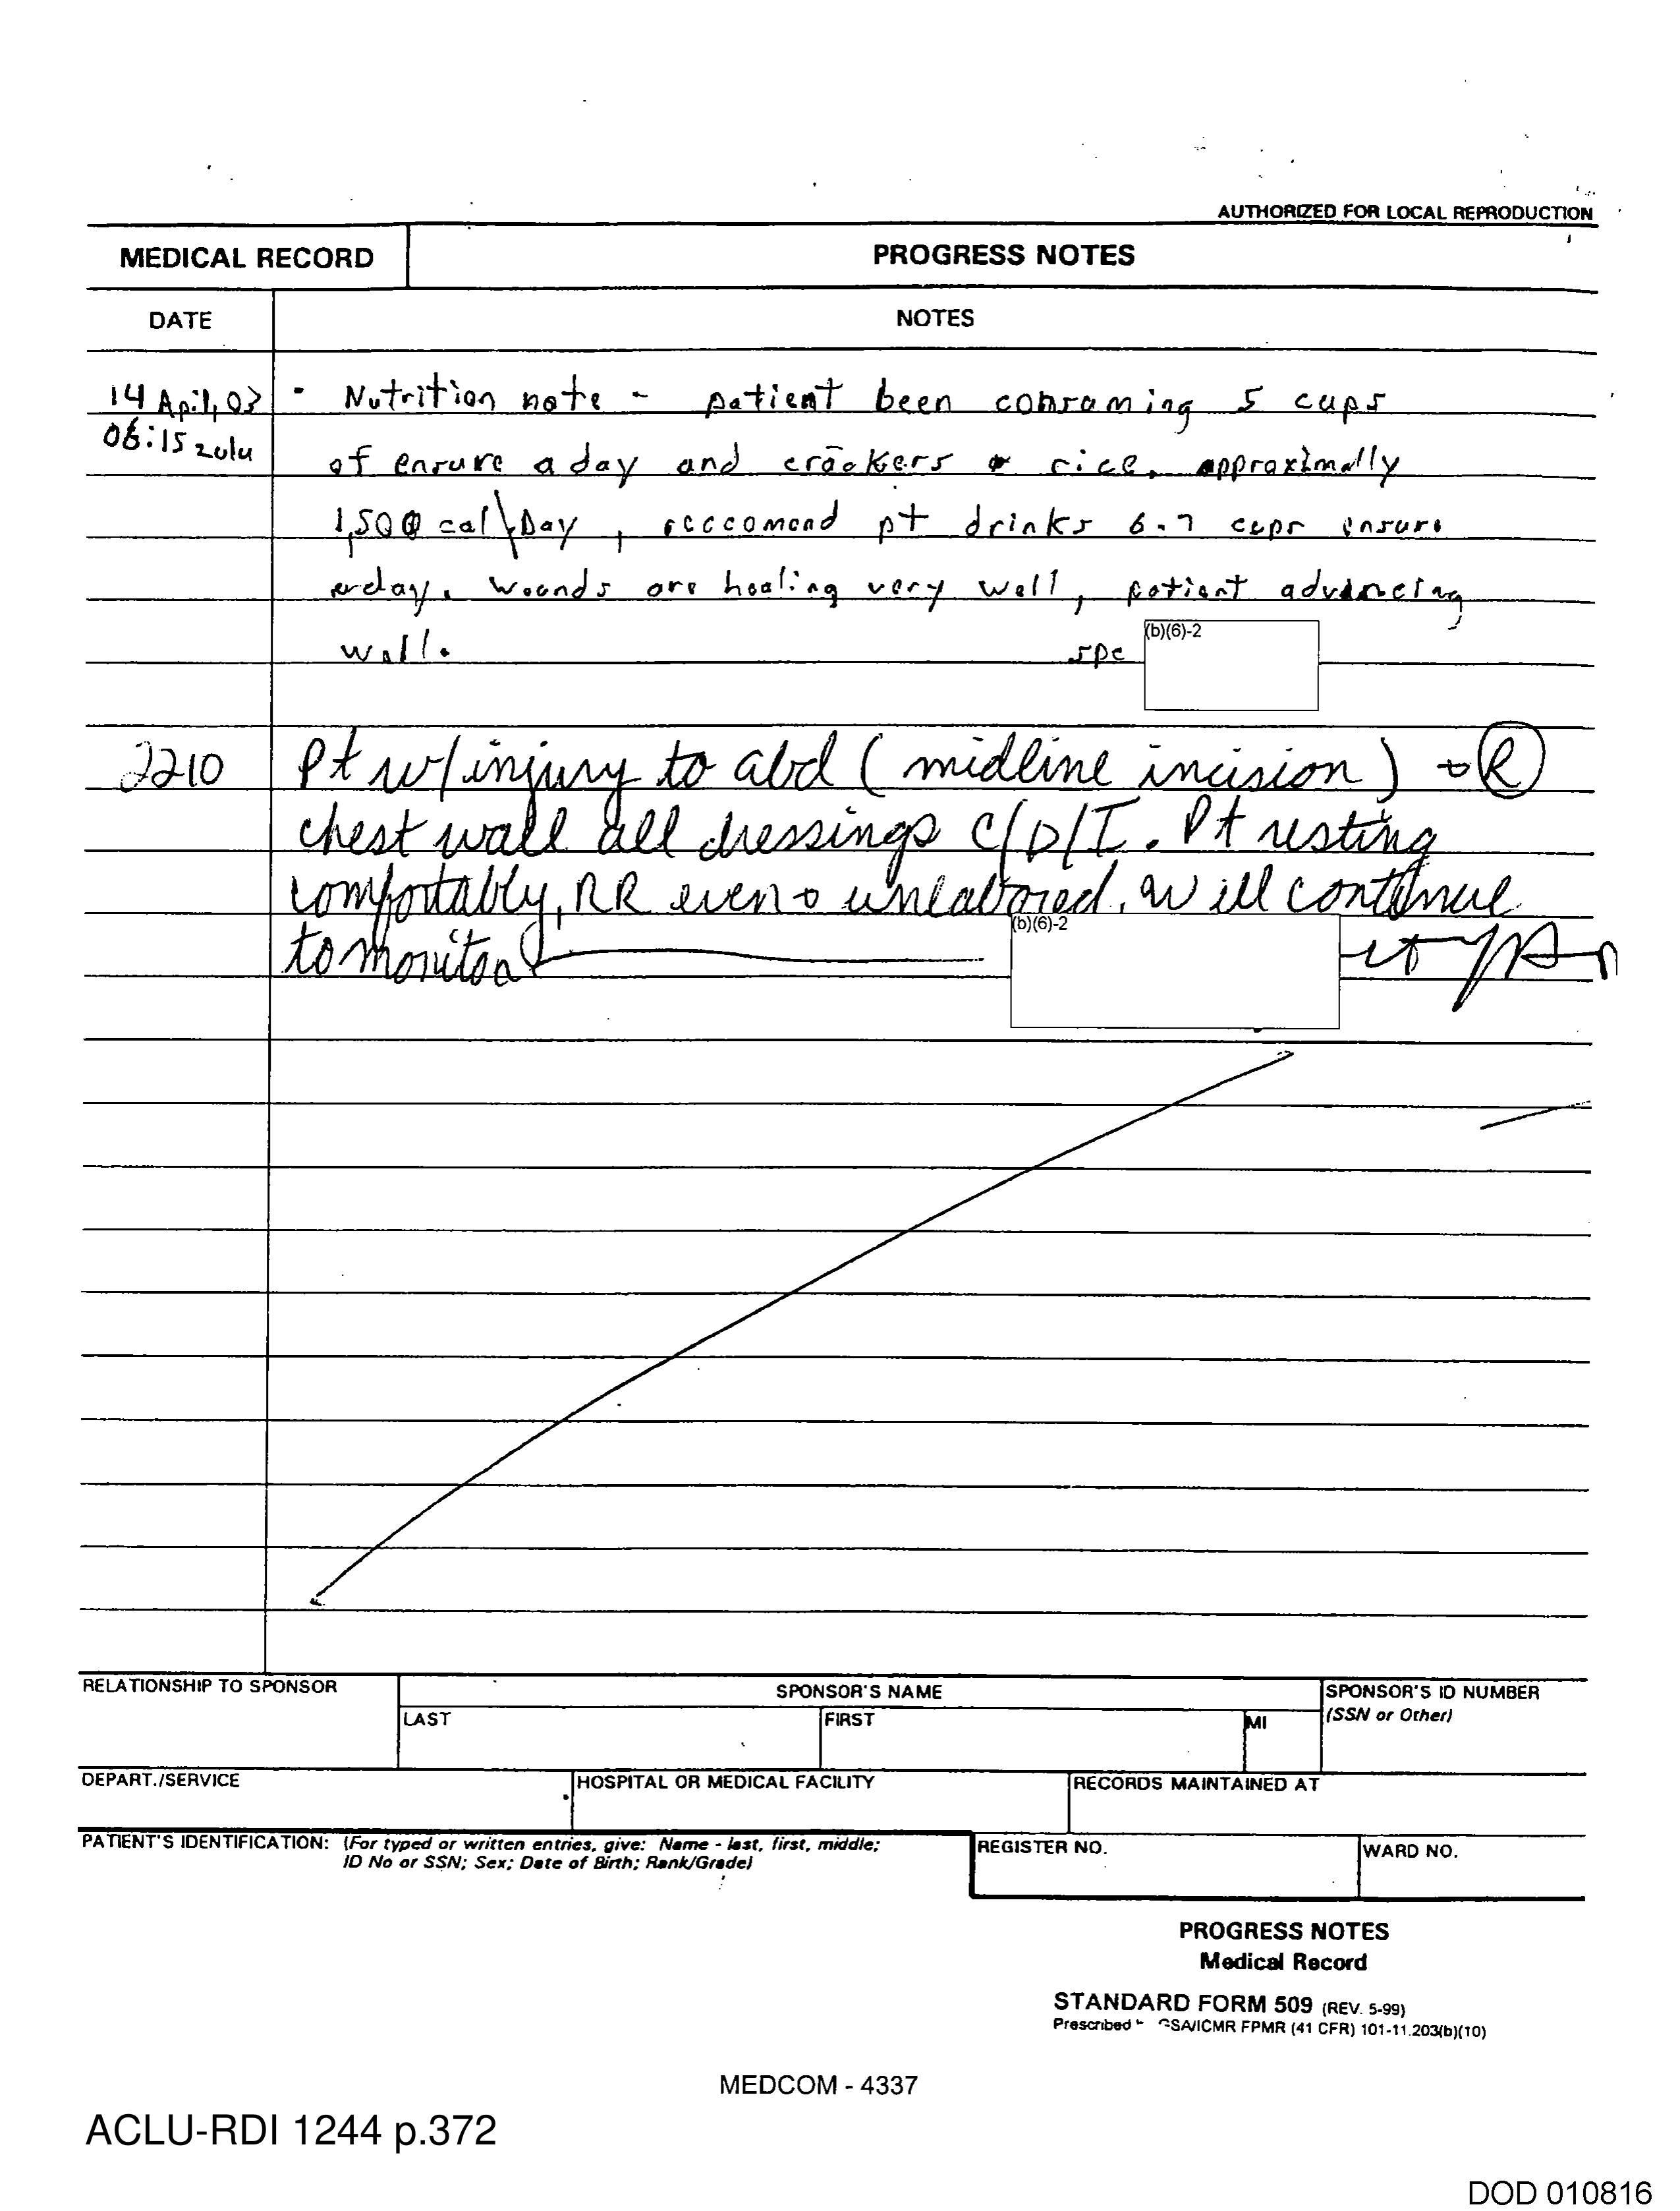 AUTHORIZED FOR LOCAL REPRODUCTION
MEDICAL RECORD PROGRESS NOTES
DATE NOTES
14 April, 03 - Nutrition note - patient been consuming 5 cups
06:15 zulu
of ensure a day and crackers rice. approximally
1,500 cal\Day, reccomend pt drinks 6-7 cups ensure
day. wounds are healing very well, patient advancing
well. spc (b)(6)-2
2210 Pt w/injury to abd (midline incision) + R
chest wall all dressings C/D/I. Pt resting
comfortably, RR even + unlabored. will continue
to monitor (b)(6)-2
RELATIONSHIP TO SPONSOR SPONSOR'S NAME SPONSOR'S ID NUMBER
LAST FIRST MI (SSN or Other)
DEPART./SERVICE HOSPITAL OR MEDICAL FACILITY RECORDS MAINTAINED AT
PATIENT'S IDENTIFICATION: (For typed or written entries, give: Name - last, first, middle; REGISTER NO. WARD NO.
ID No or SSN; Sex; Date of Birth; Rank/Grade)
PROGRESS NOTES
Medical Record
STANDARD FORM 509 (REV. 5-99)
Prescribed GSA/ICMR FPMR (41 CFR) 101-11.203(b)(10)
MEDCOM - 4337
ACLU-RDI 1244 p.372
DOD 010816